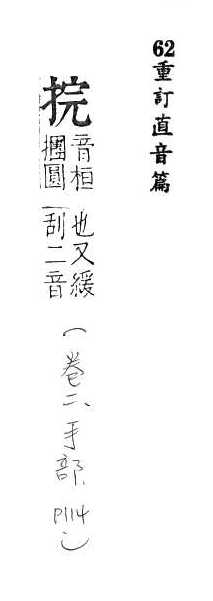 62重訂直音篇
捖
音桓
圓
也又緩
刮二音
（卷二、手部、P114）